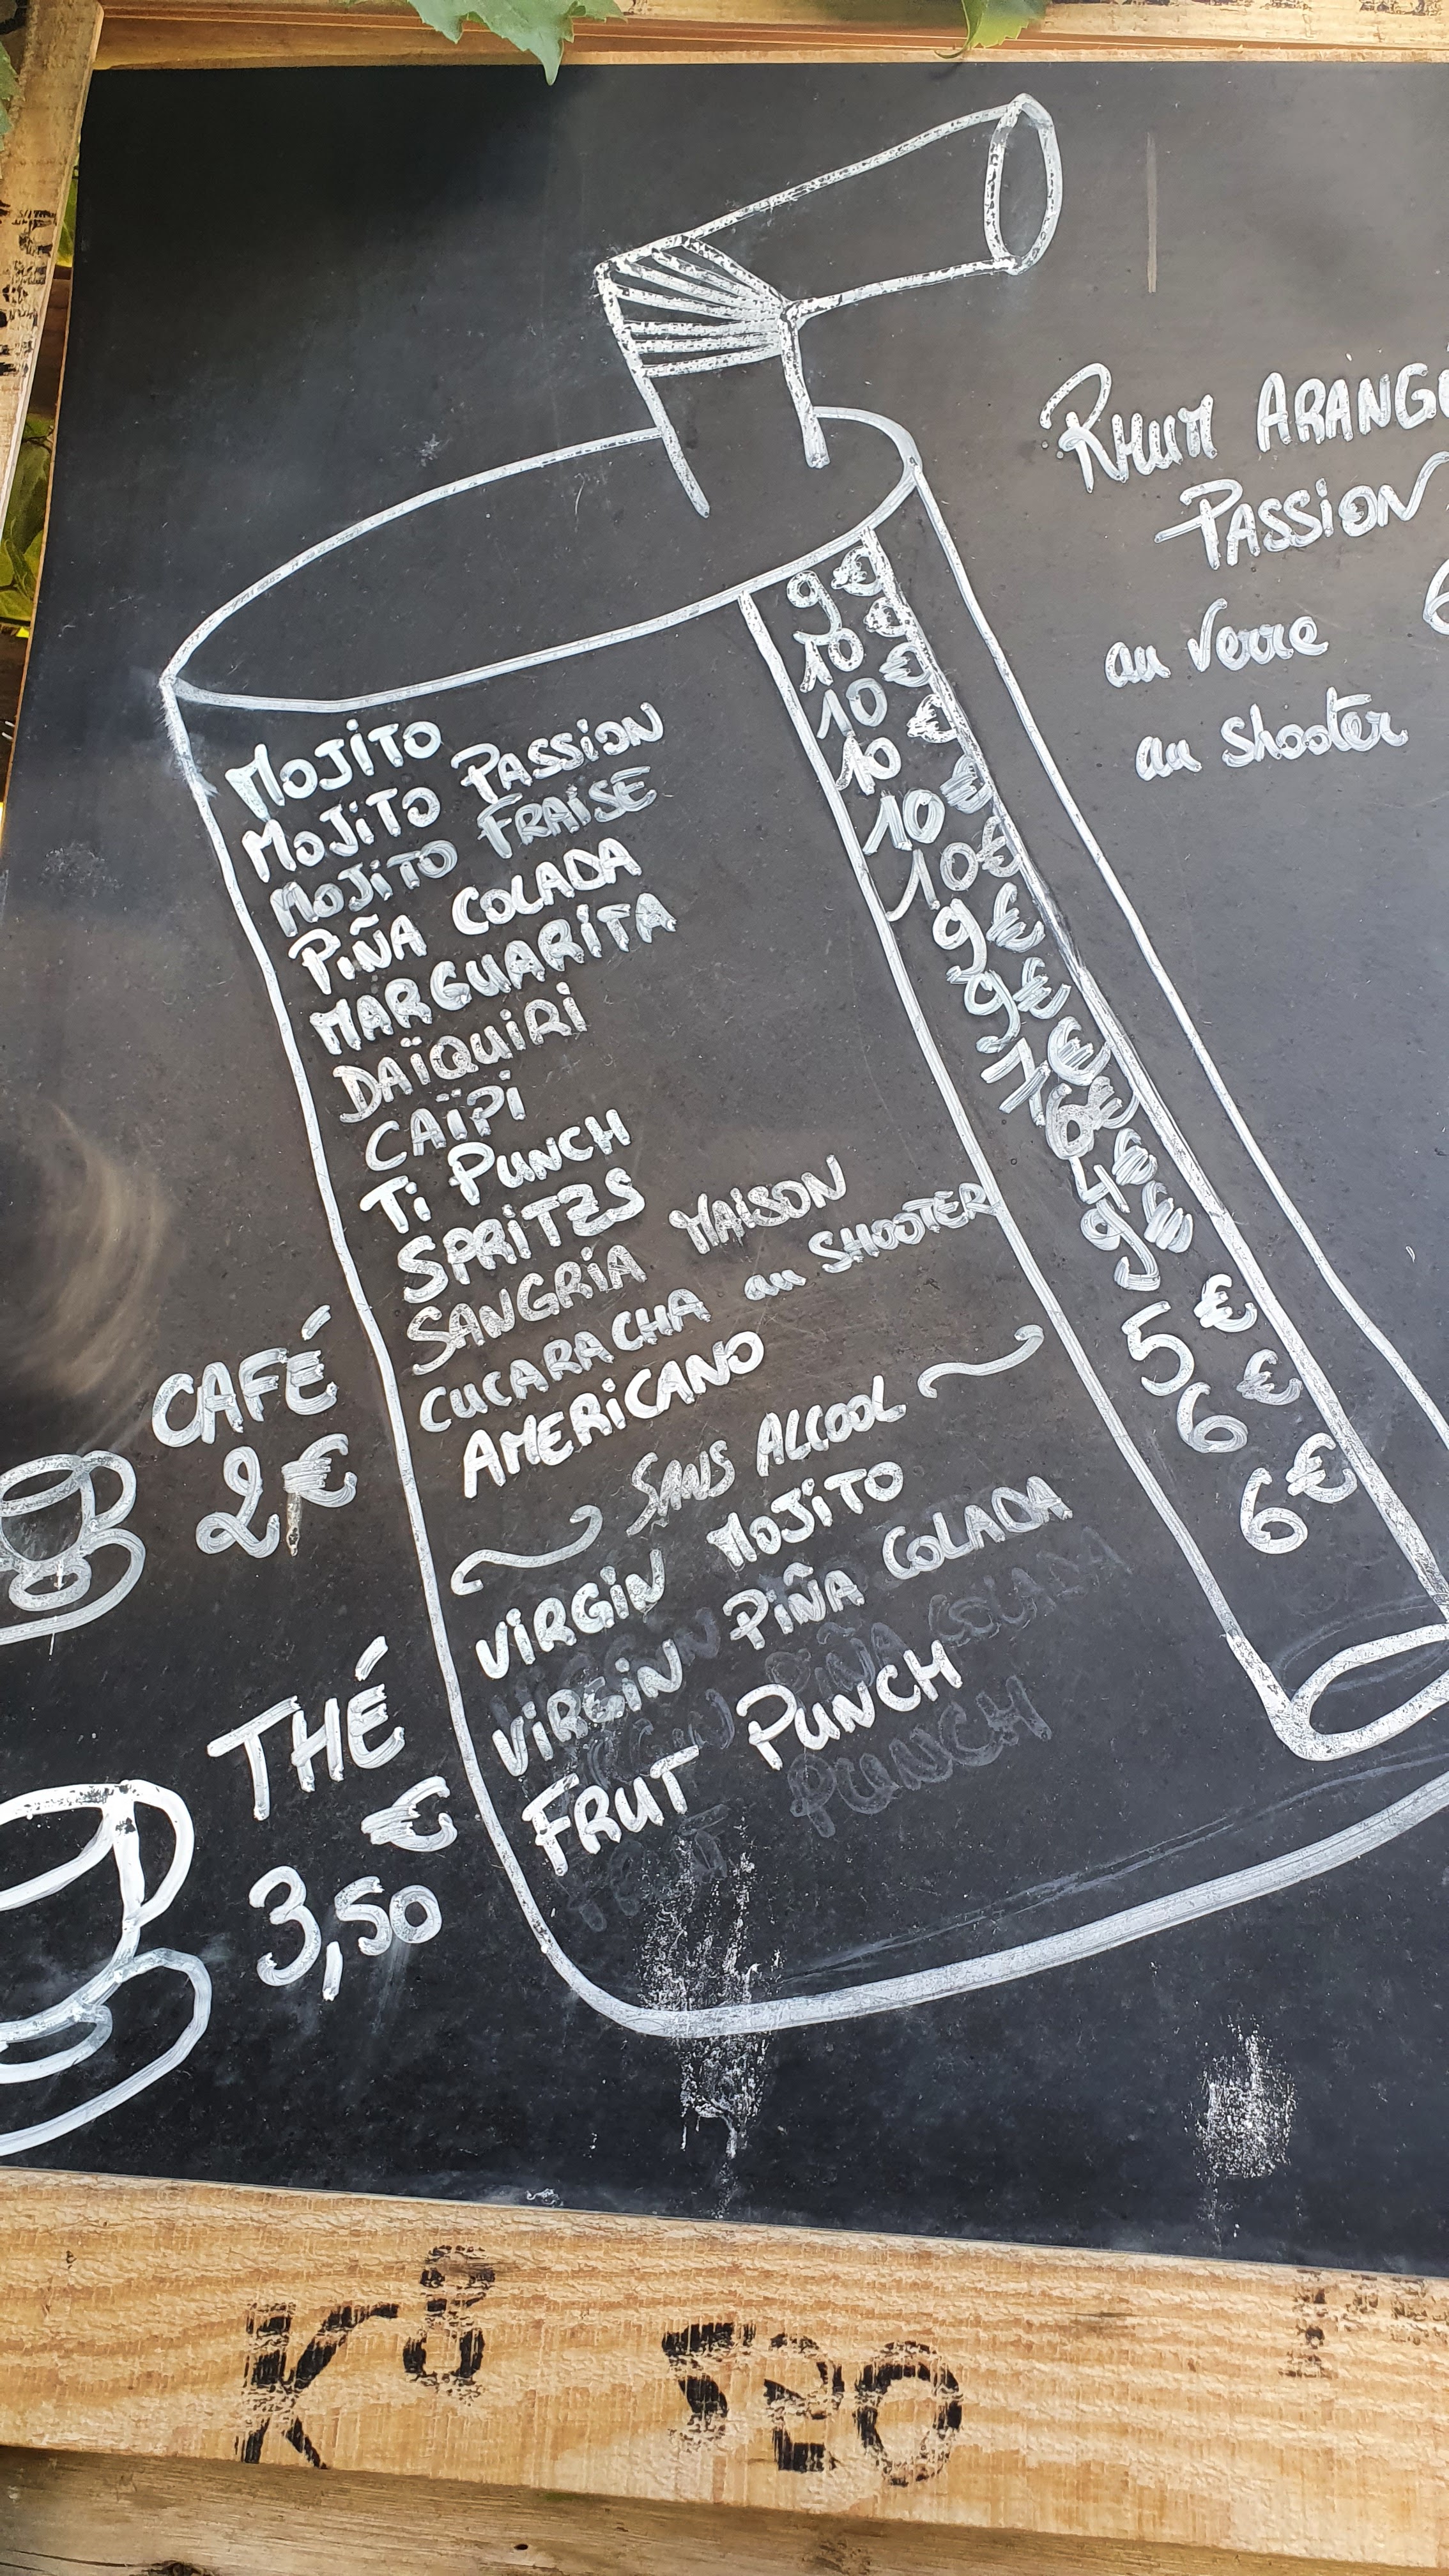 RHUM ARANG
PASSION
au verre
au shooter
MOJITO 9€
MOJITO PASSION 10€
MOJITO FRAISE 10€
PIÑA COLADA 10€
MARGUARITA 10€
DAÏQUIRI 10€
CAÏPI 9€
Ti PUNCH 9€
SPRITZS 7€
SANGRIA MAISON 6€
CUCARACHA au SHOOTER 4€
AMERICANO 9€
SANS ALCOOL
VIRGIN MOJITO 5€
VIRGIN PIÑA COLADA 6€
FRUT PUNCH 6€
CAFÉ
2€
THÉ
3,50€